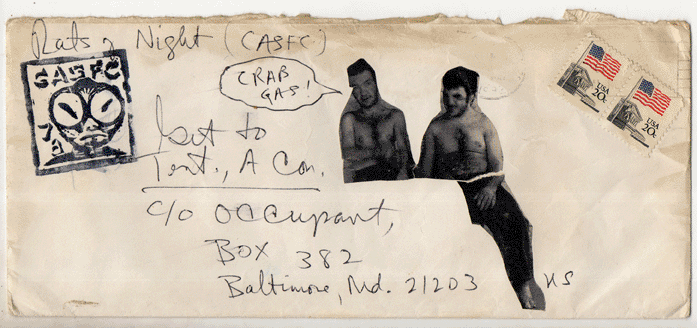 Rats , Night (CASFC)
CASFC
CRAB
GAS!
to
Tent., A Con.
c/o Occupant,
Box 382
Baltimore, Md. 21203
US
USA
20c
USA
20c